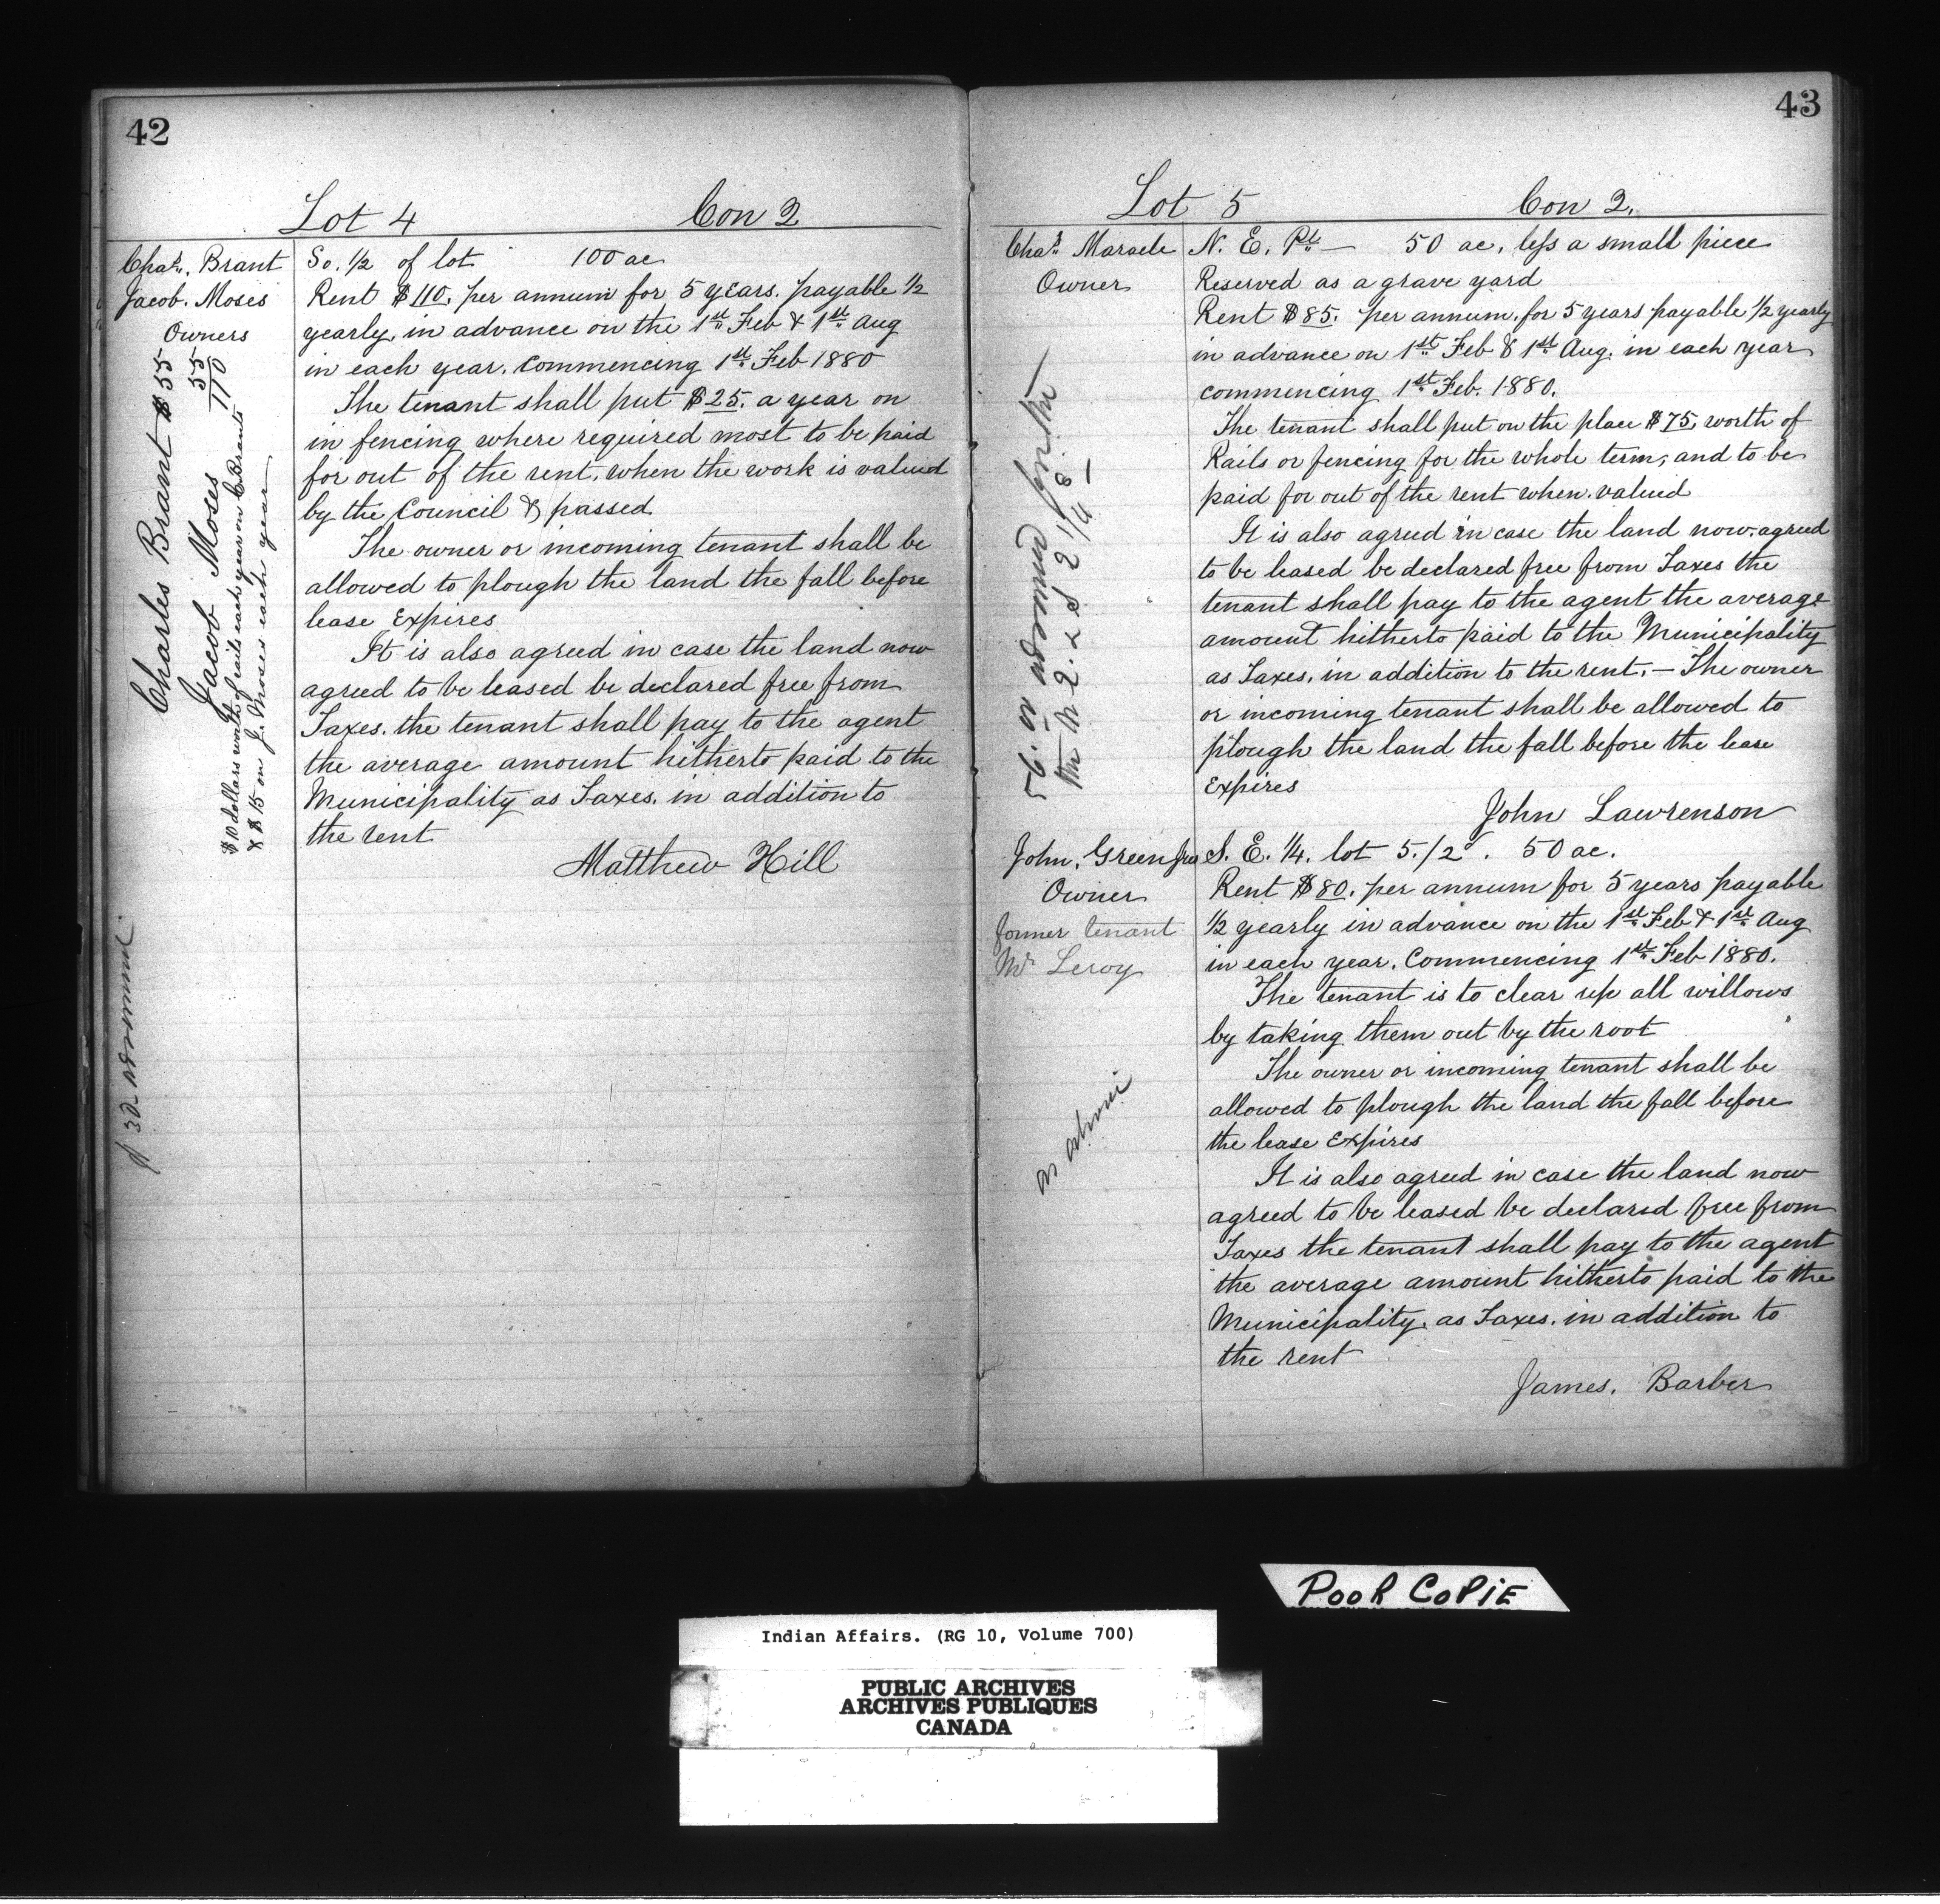 42
Lot 4 Con 2
Chas. Brant
Jacob. Moses
Owners
Charles Brant $55
Jacob Moses 55
110
$10 dollars worth of rails each year on C Brants
& $15 on J. Moses each year
So. 1/2 of lot 100 ac
Rent $110. per annum for 5 years. payable 1/2
yearly, in advance on the 1st Feb & 1st Aug
in each year. Commencing 1st Feb 1880
The tenant shall put $25. a year on
in fencing where required most to be paid
for out of the rent, when the work is valued
by the Council & passed
The owner or incoming tenant shall be
allowed to plough the land the fall before
lease Expires
It is also agreed in case the land now
agreed to be leased be declared free from
Taxes. the tenant shall pay to the agent
the average amount hitherto paid to the
Municipality as Taxes. in addition to
the rent
Matthew Hill
43
Lot 5 Con 2.
Chas. Maracle
Owner
N. E. Pt — 50 ac. less a small piece
Reserved as a grave yard
Rent $85. per annum. for 5 years payable 1/2 yearly
in advance on 1st Feb & 1st Aug. in each year
commencing 1st Feb. 1880.
The tenant shall put on the place $75, worth of
Rails or fencing for the whole term, and to be
paid for out of the rent when valued
It is also agreed in case the land now agreed
to be leased be declared free from Taxes the
tenant shall pay to the agent the average
amount hitherto paid to the Municipality
as Taxes, in addition to the rent. — The owner
or incoming tenant shall be allowed to
plough the land the fall before the lease
Expires
John Lawrenson
John. Green
Owner
former tenant
Mr Leroy
as above
S. E. 1/4. lot 5./2d. 50 ac.
Rent $80. per annum for 5 years payable
1/2 yearly in advance on the 1st Feb & 1st Aug
in each year. Commencing 1st Feb 1880.
The tenant is to clear up all willows
by taking them out by the root
The owner or incoming tenant shall be
allowed to plough the land the fall before
the lease Expires
It is also agreed in case the land now
agreed to be leased be declared free from
Taxes the tenant shall pay to the agent
the average amount hitherto paid to the
Municipality. as Taxes. in addition to
the rent
James. Barber
POOR COPIE
Indian Affairs. (RG 10, Volume 700)
PUBLIC ARCHIVES
ARCHIVES PUBLIQUES
CANADA